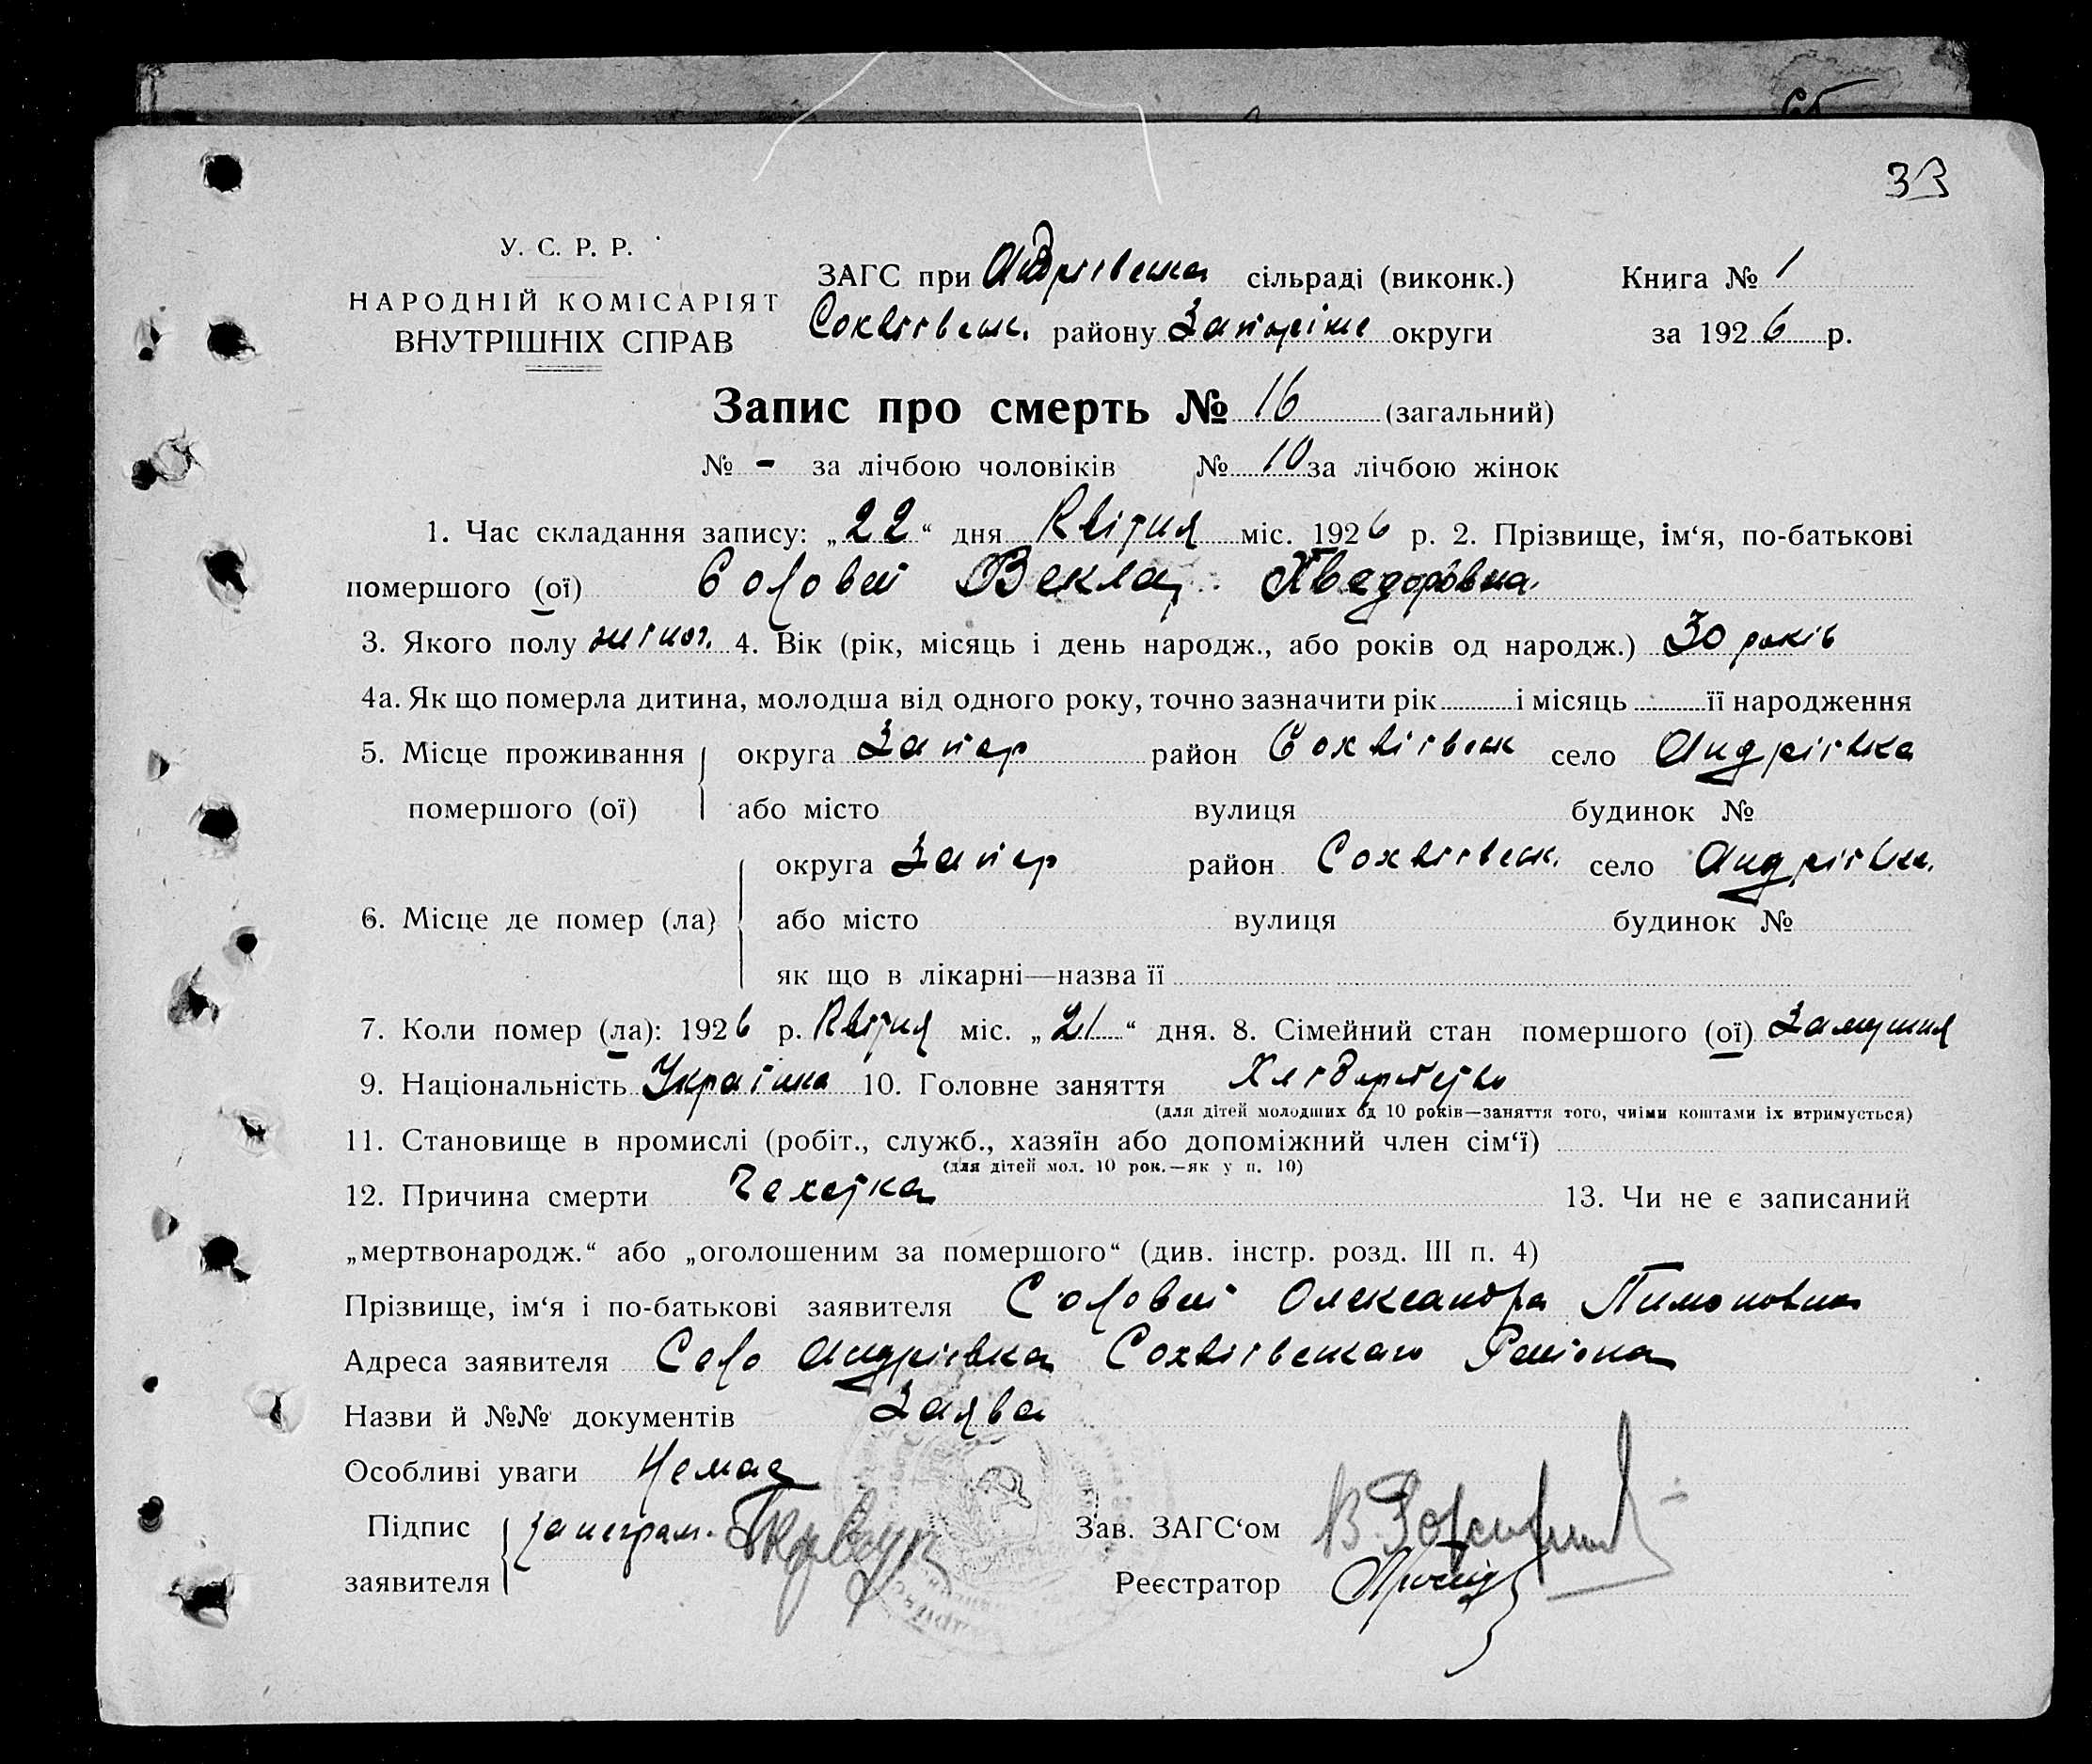 33
У. С. Р. Р.
НАРОДНІЙ КОМІСАРІЯТ
ВНУТРІШНІХ СПРАВ
ЗАГС при Андрівська сільраді (виконк.) Книга № 1
Сохвівськ. району Запоріж округи за 1926 р.
Запис про смерть № 16 (загальний)
№ - за лічбою чоловіків № 10 за лічбою жінок
1. Час складання запису: „22“ дня Квітня міс. 1926 р. 2. Прізвище, ім‘я, по-батькові
помершого (ої) Соловей Векла Хведоровна
3. Якого полу жіноч. 4. Вік (рік, місяць і день народж., або років од народж.) 30 років
4а. Як що померла дитина, молодша від одного року, точно зазначити рік і місяць її народження
5. Місце проживання округа Запор район Сохвівськ село Андрівка
помершого (ої) або місто вулиця будинок №
округа Запор район Сохвівськ. село Андрівка
6. Місце де помер (ла) або місто вулиця будинок №
як що в лікарні—назва її
7. Коли помер (ла): 1926 р. Квітня міс. „21“ дня. 8. Сімейний стан помершого (ої) Замужня
9. Національність Українка 10. Головне заняття Хліборобство
(для дітей молодших од 10 років—заняття того, чиїми коштами їх втримується)
11. Становище в промислі (робіт., служб., хазяїн або допоміжний член сім‘ї)
(для дітей мол. 10 рок.—як у п. 10)
12. Причина смерти Чехотка 13. Чи не є записаний
„мертвонародж.“ або „оголошеним за помершого“ (див. інстр. розд. III п. 4)
Прізвище, ім‘я і по-батькові заявителя Соловей Олександра Пимоновна
Адреса заявителя Село Андрівка Сохвівського Района
Назви й №№ документів Заява
Особливі уваги Немає
Підпис за неграм. Зав. ЗАГС‘ом
заявителя Реєстратор